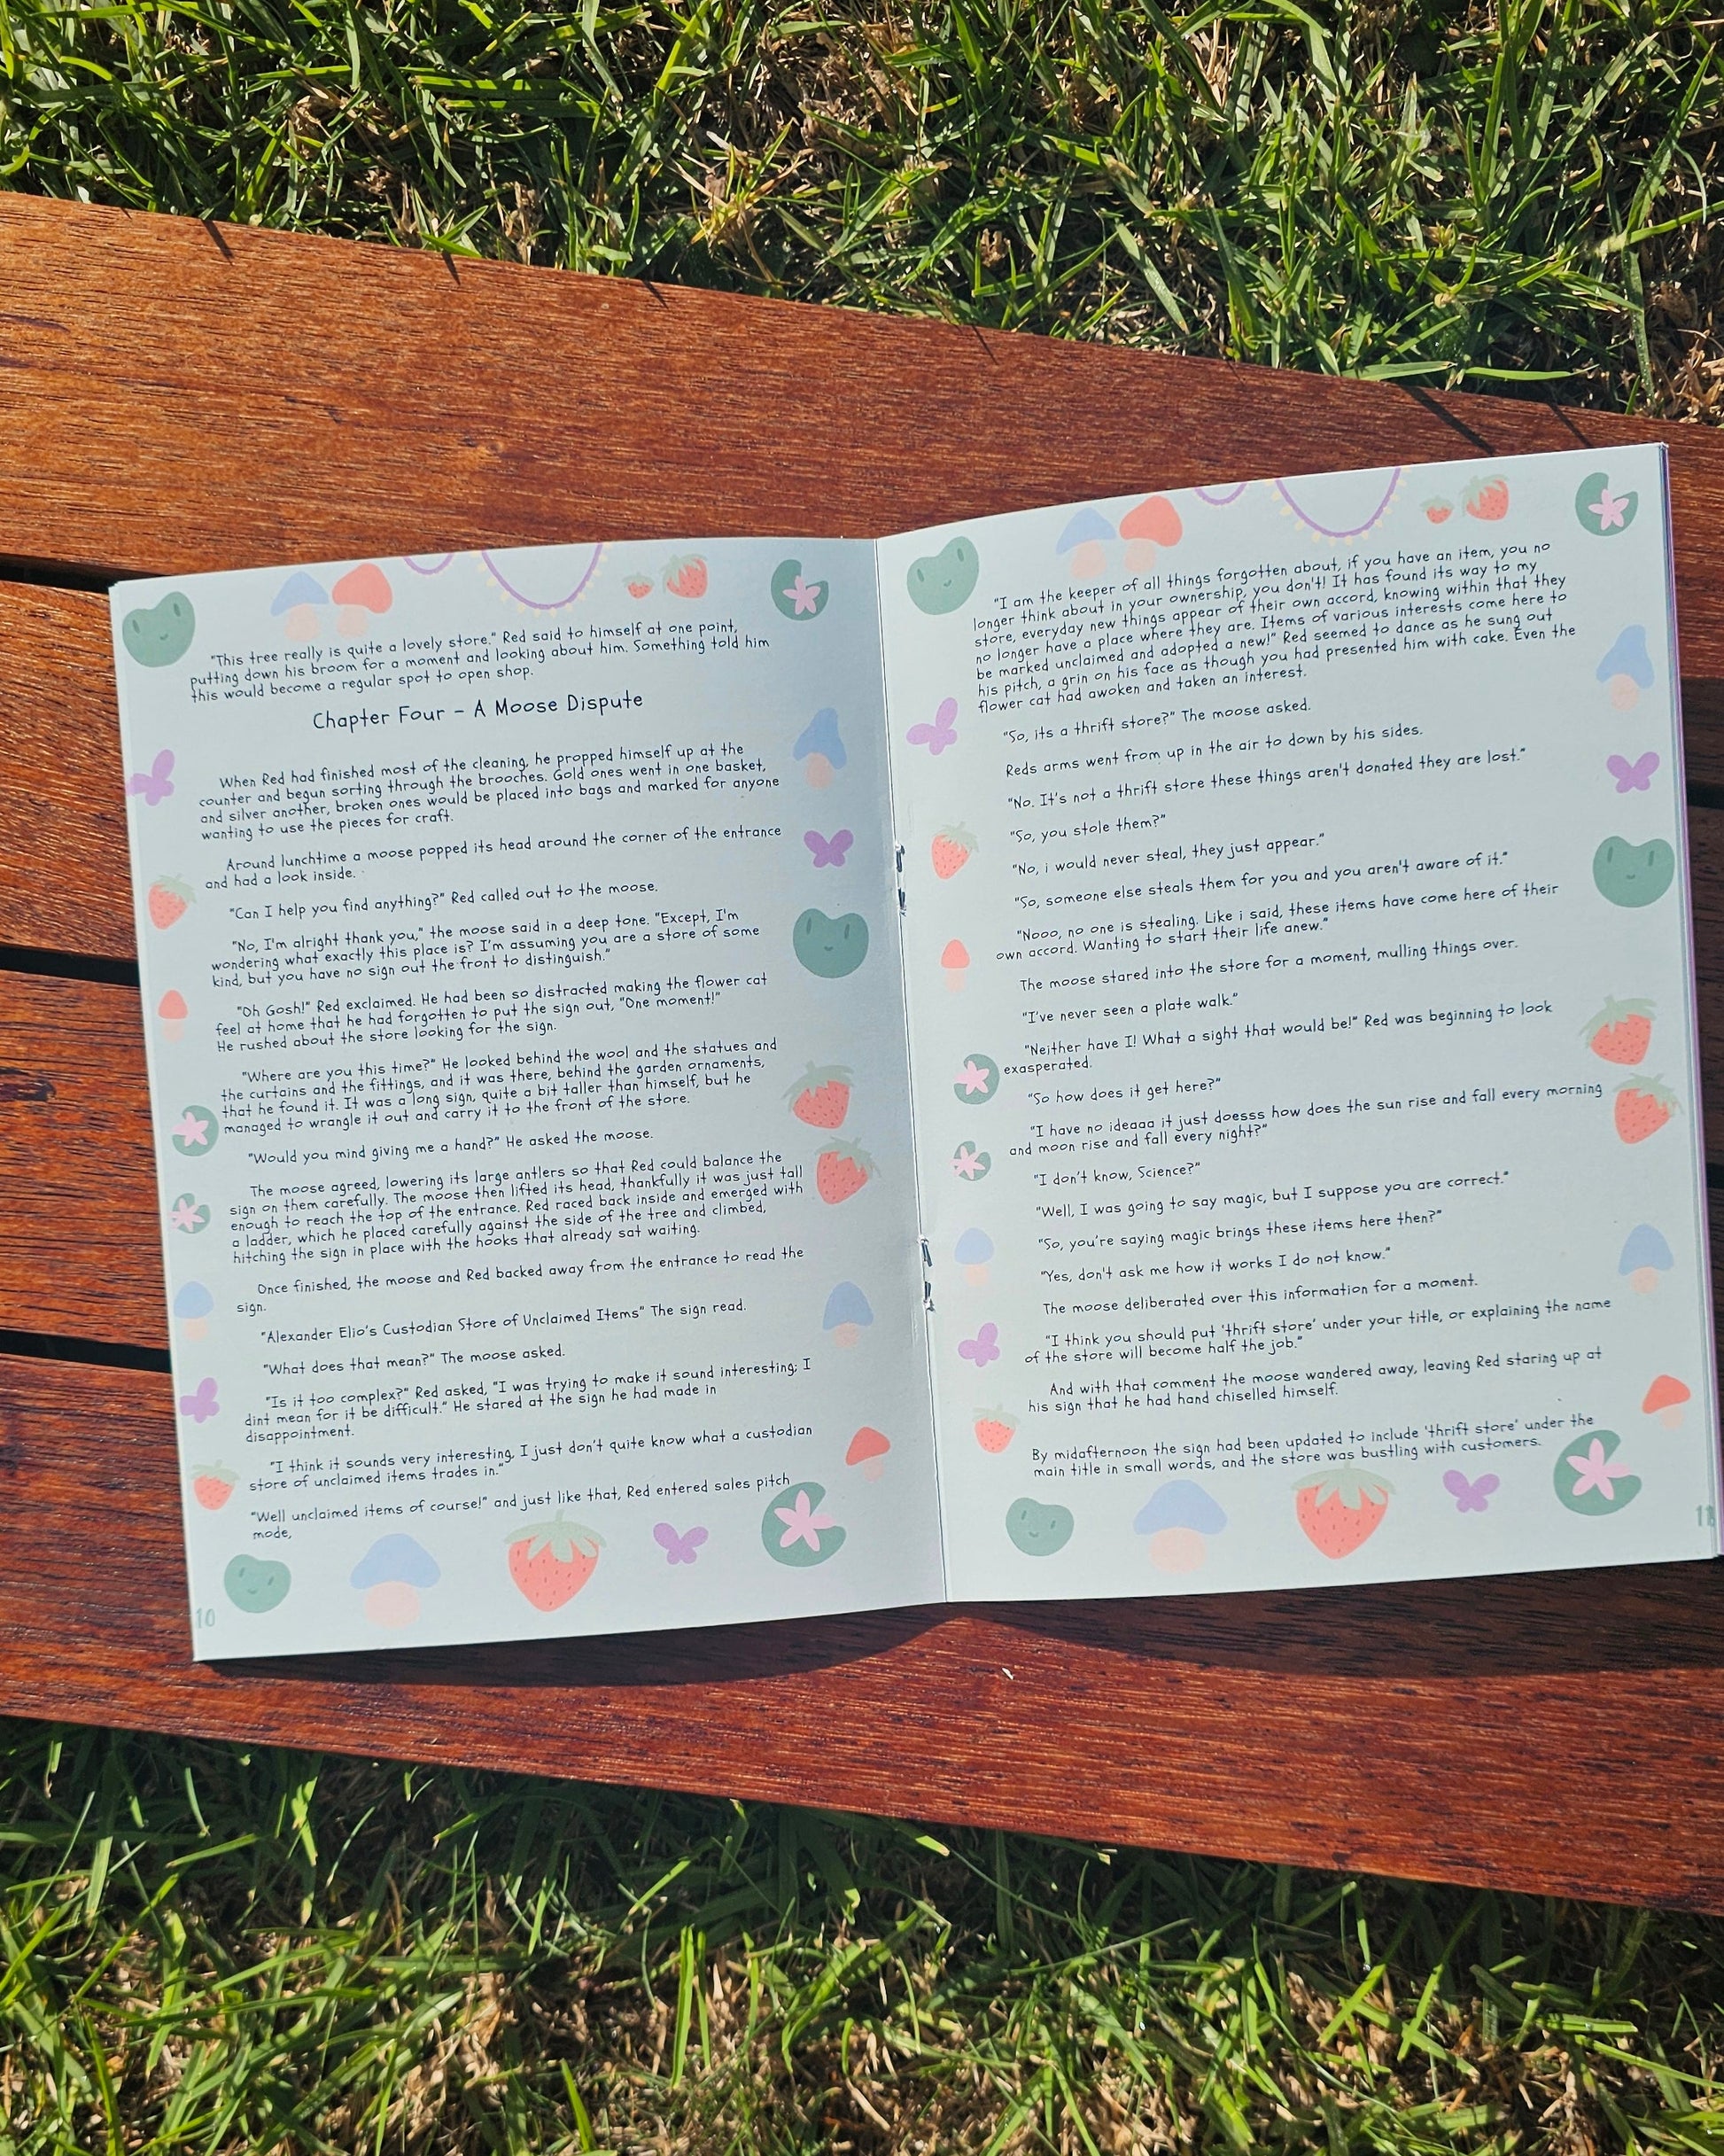 "This tree really is quite a lovely store." Red said to himself at one point,
putting down his broom for a moment and looking about him. Something told him
this would become a regular spot to open shop.
Chapter Four - A Moose Dispute
When Red had finished most of the cleaning, he propped himself up at the
counter and begun sorting through the brooches. Gold ones went in one basket,
and silver another, broken ones would be placed into bags and marked for anyone
wanting to use the pieces for craft.
Around lunchtime a moose popped its head around the corner of the entrance
and had a look inside.
"Can I help you find anything?" Red called out to the moose.
"No, I'm alright thank you," the moose said in a deep tone. "Except, I'm
wondering what exactly this place is? I'm assuming you are a store of some
kind, but you have no sign out the front to distinguish."
"Oh Gosh!" Red exclaimed. He had been so distracted making the flower cat
feel at home that he had forgotten to put the sign out, "One moment!"
He rushed about the store looking for the sign.
"Where are you this time?" He looked behind the wool and the statues and
the curtains and the fittings, and it was there, behind the garden ornaments,
that he found it. It was a long sign, quite a bit taller than himself, but he
managed to wrangle it out and carry it to the front of the store.
"Would you mind giving me a hand?" He asked the moose.
The moose agreed, lowering its large antlers so that Red could balance the
sign on them carefully. The moose then lifted its head, thankfully it was just tall
enough to reach the top of the entrance. Red raced back inside and emerged with
a ladder, which he placed carefully against the side of the tree and climbed,
hitching the sign in place with the hooks that already sat waiting.
Once finished, the moose and Red backed away from the entrance to read the
sign.
"Alexander Elio's Custodian Store of Unclaimed Items" The sign read.
"What does that mean?" The moose asked.
"Is it too complex?" Red asked, "I was trying to make it sound interesting; I
dint mean for it be difficult." He stared at the sign he had made in
disappointment.
"I think it sounds very interesting, I just don't quite know what a custodian
store of unclaimed items trades in."
"Well unclaimed items of course!" and just like that, Red entered sales pitch
mode,
10
"I am the keeper of all things forgotten about, if you have an item, you no
longer think about in your ownership, you don't! It has found its way to my
store, everyday new things appear of their own accord, knowing within that they
no longer have a place where they are. Items of various interests come here to
be marked unclaimed and adopted a new!" Red seemed to dance as he sung out
his pitch, a grin on his face as though you had presented him with cake. Even the
flower cat had awoken and taken an interest.
"So, its a thrift store?" The moose asked.
Reds arms went from up in the air to down by his sides.
"No. It's not a thrift store these things aren't donated they are lost."
"So, you stole them?"
"No, i would never steal, they just appear."
"So, someone else steals them for you and you aren't aware of it."
"Nooo, no one is stealing. Like i said, these items have come here of their
own accord. Wanting to start their life anew."
The moose stared into the store for a moment, mulling things over.
"I've never seen a plate walk."
"Neither have I! What a sight that would be!" Red was beginning to look
exasperated.
"So how does it get here?"
"I have no ideaaa it just doesss how does the sun rise and fall every morning
and moon rise and fall every night?"
"I don't know, Science?"
"Well, I was going to say magic, but I suppose you are correct."
"So, you're saying magic brings these items here then?"
"Yes, don't ask me how it works I do not know."
The moose deliberated over this information for a moment.
"I think you should put 'thrift store' under your title, or explaining the name
of the store will become half the job."
And with that comment the moose wandered away, leaving Red staring up at
his sign that he had hand chiselled himself.
By midafternoon the sign had been updated to include 'thrift store' under the
main title in small words, and the store was bustling with customers.